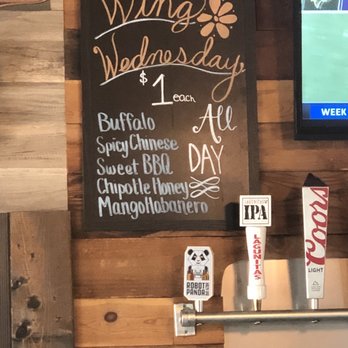 Wing
Wednesday
$1 each
All
DAY
Buffalo
Spicy Chinese
Sweet BBQ
Chipotle Honey
Mango Habanero
WEEK
LAGUNITAS
IPA
LAGUNITAS
ROBOT
PANDA
Coors
LIGHT